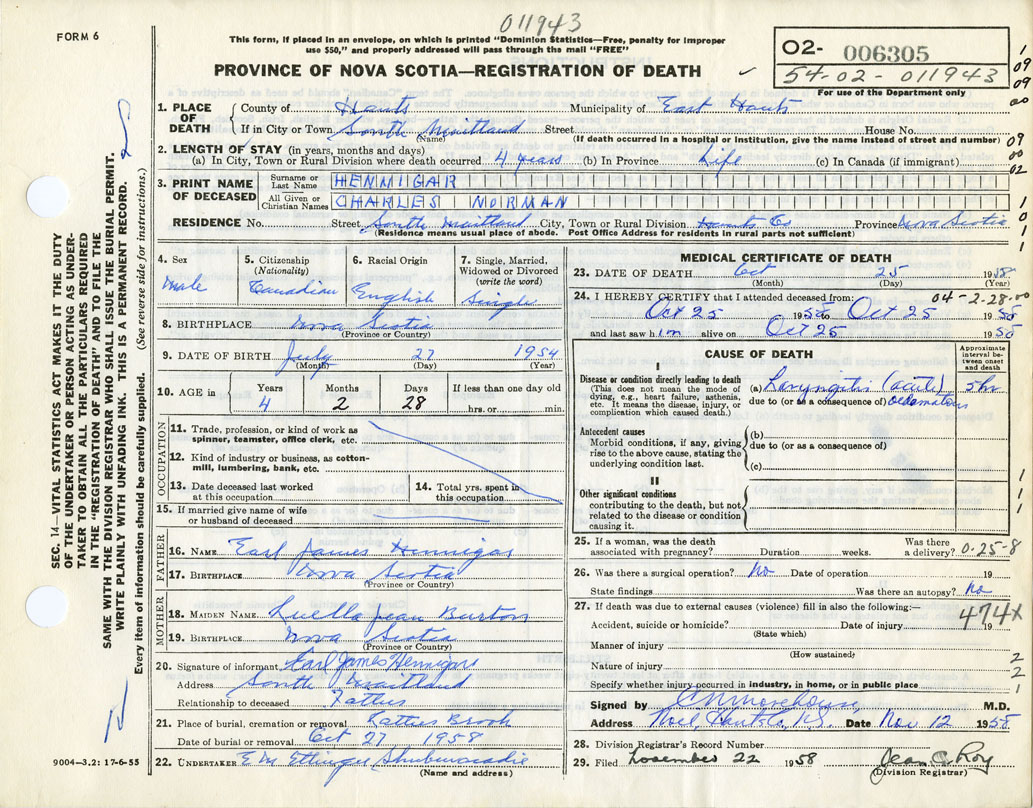 011943
FORM 6
This form, if placed in an envelope, on which is printed "Dominion Statistics—Free, penalty for improper
use $50," and properly addressed will pass through the mail "FREE"
02- 006305
54-02-011943
For use of the Department only
PROVINCE OF NOVA SCOTIA—REGISTRATION OF DEATH
1. PLACE OF DEATH County of Hants Municipality of East Hants
If in City or Town South Maitland Street House No.
(Name) (If death occurred in a hospital or institution, give the name instead of street and number)
2. LENGTH OF STAY (in years, months and days)
(a) In City, Town or Rural Division where death occurred 4 years (b) In Province Life (c) In Canada (if immigrant)
3. PRINT NAME OF DECEASED Surname or Last Name HENNIGAR
All Given or Christian Names CHARLES NORMAN
RESIDENCE No. Street South Maitland City, Town or Rural Division Hants Co Province Nova Scotia
(Residence means usual place of abode. Post Office Address for residents in rural parts not sufficient)
4. Sex Male
5. Citizenship (Nationality) Canadian
6. Racial Origin English
7. Single, Married, Widowed or Divorced (write the word) Single
8. BIRTHPLACE Nova Scotia
(Province or Country)
9. DATE OF BIRTH July 27 1954
(Month) (Day) (Year)
10. AGE in Years 4 Months 2 Days 28 If less than one day old hrs. or min.
OCCUPATION
11. Trade, profession, or kind of work as spinner, teamster, office clerk, etc.
12. Kind of industry or business, as cotton-mill, lumbering, bank, etc.
13. Date deceased last worked at this occupation
14. Total yrs. spent in this occupation
15. If married give name of wife or husband of deceased
FATHER
16. NAME Earl James Hennigar
17. BIRTHPLACE Nova Scotia
(Province or Country)
MOTHER
18. MAIDEN NAME Luella Jean Burton
19. BIRTHPLACE Nova Scotia
(Province or Country)
20. Signature of informant Earl James Hennigar
Address South Maitland
Relationship to deceased Father
21. Place of burial, cremation or removal Rattus Brook
Date of burial or removal Oct 27 1958
22. UNDERTAKER E M Ettinger Shubenacadie
(Name and address)
9004—3.2: 17-6-55
MEDICAL CERTIFICATE OF DEATH
23. DATE OF DEATH Oct 25 1958
(Month) (Day) (Year)
24. I HEREBY CERTIFY that I attended deceased from: 04-2-28.00
Oct 25 1958 to Oct 25 1958
and last saw him alive on Oct 25 1958
CAUSE OF DEATH
Approximate interval between onset and death
I
Disease or condition directly leading to death
(This does not mean the mode of dying, e.g., heart failure, asthenia, etc. It means the disease, injury, or complication which caused death.)
(a) Laryngitis (acute) 5 hr
due to (or as a consequence of) oedematous
Antecedent causes
Morbid conditions, if any, giving rise to the above cause, stating the underlying condition last.
(b)
due to (or as a consequence of)
(c)
II
Other significant conditions
contributing to the death, but not related to the disease or condition causing it.
25. If a woman, was the death associated with pregnancy? Duration weeks. Was there a delivery? 0-25-8
26. Was there a surgical operation? No Date of operation 19
State findings Was there an autopsy? No
27. If death was due to external causes (violence) fill in also the following:—
474X
Accident, suicide or homicide? Date of injury 19
(State which)
Manner of injury
(How sustained)
Nature of injury
Specify whether injury occurred in industry, in home, or in public place
Signed by C N Morehouse M.D.
Address Noel, Hants Co, N.S. Date Nov 12 1958
28. Division Registrar's Record Number
29. Filed November 22 1958 Jean C Roy
(Division Registrar)
SEC. 14—VITAL STATISTICS ACT MAKES IT THE DUTY
OF THE UNDERTAKER OR PERSON ACTING AS UNDER-
TAKER TO OBTAIN ALL THE PARTICULARS REQUIRED
IN THE "REGISTRATION OF DEATH" AND TO FILE THE
SAME WITH THE DIVISION REGISTRAR WHO SHALL ISSUE THE BURIAL PERMIT.
WRITE PLAINLY WITH UNFADING INK. THIS IS A PERMANENT RECORD.
Every item of information should be carefully supplied. (See reverse side for instructions.)
1
09
09
00
09
00
02
1
0
1
1
1
1
1
2
2
1